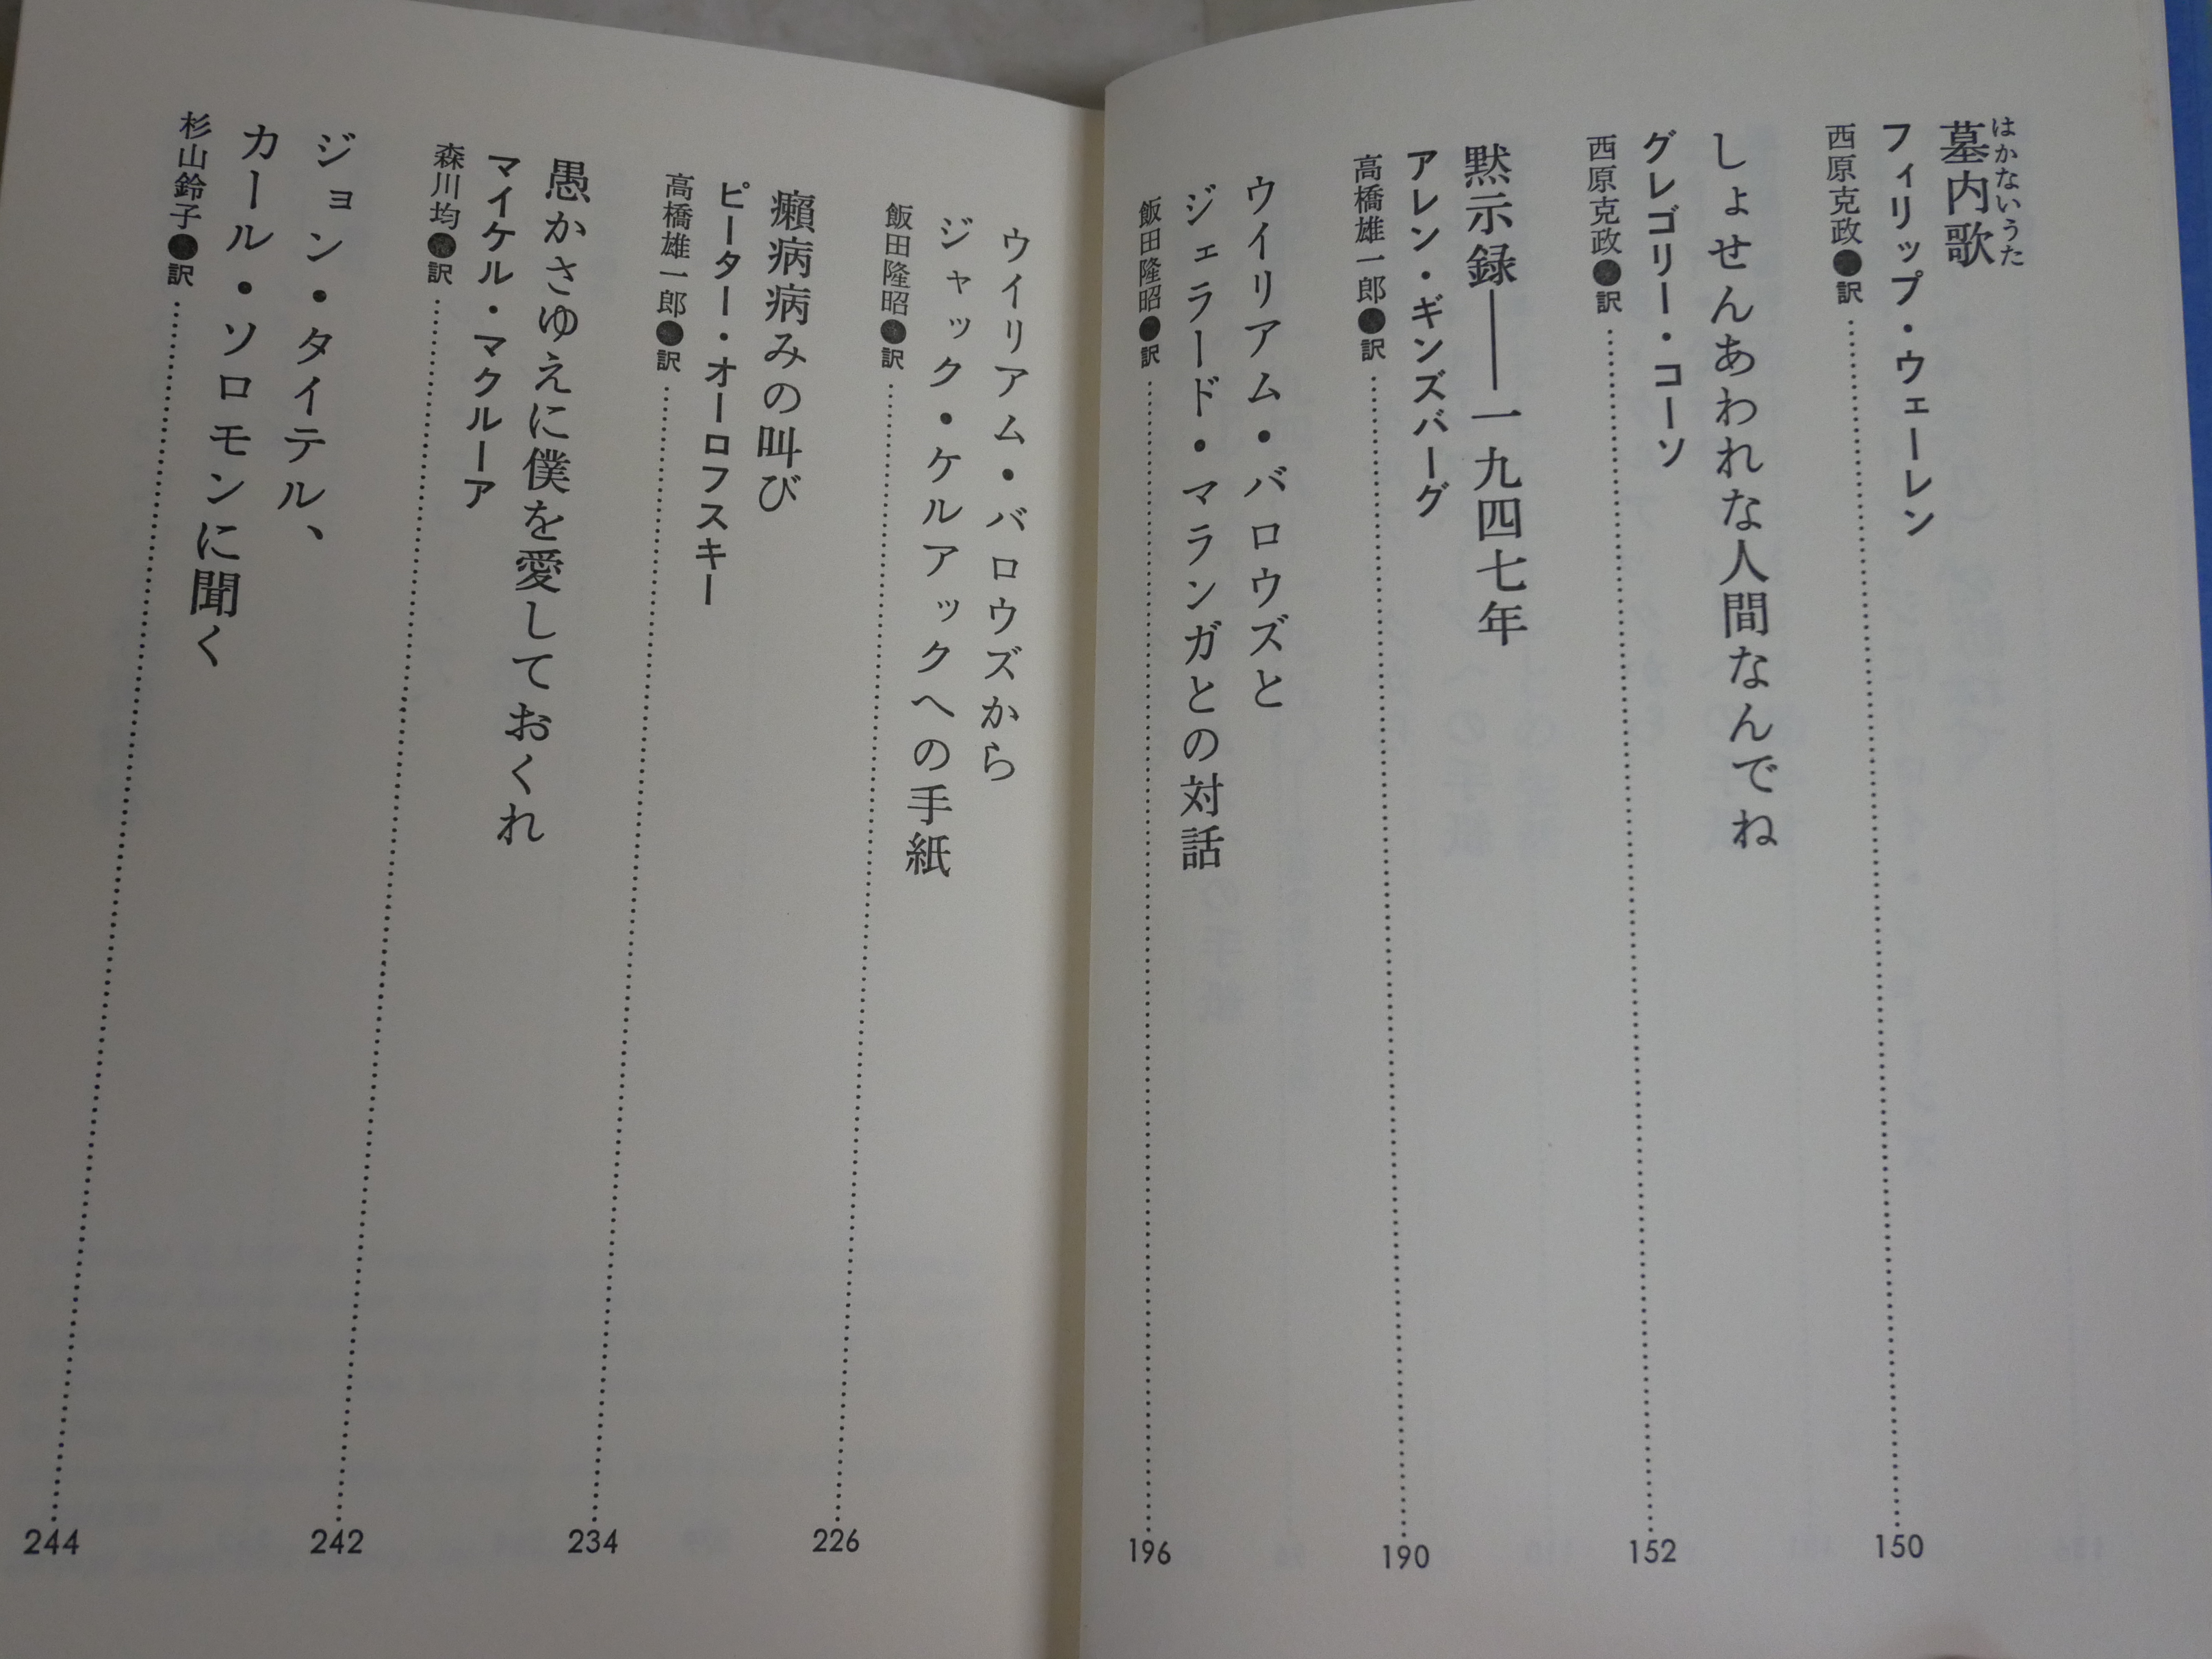 墓内歌
はかないうた
フィリップ・ウェーレン
西原克政●訳
150
しょせんあわれな人間なんでね
グレゴリー・コーソ
西原克政●訳
152
黙示録――一九四七年
アレン・ギンズバーグ
高橋雄一郎●訳
190
ウイリアム・バロウズと
ジェラード・マランガとの対話
飯田隆昭●訳
196
ウイリアム・バロウズから
ジャック・ケルアックへの手紙
飯田隆昭●訳
226
癩病病みの叫び
ピーター・オーロフスキー
高橋雄一郎●訳
234
愚かさゆえに僕を愛しておくれ
マイケル・マクルーア
森川均●訳
242
ジョン・タイテル、
カール・ソロモンに聞く
杉山鈴子●訳
244